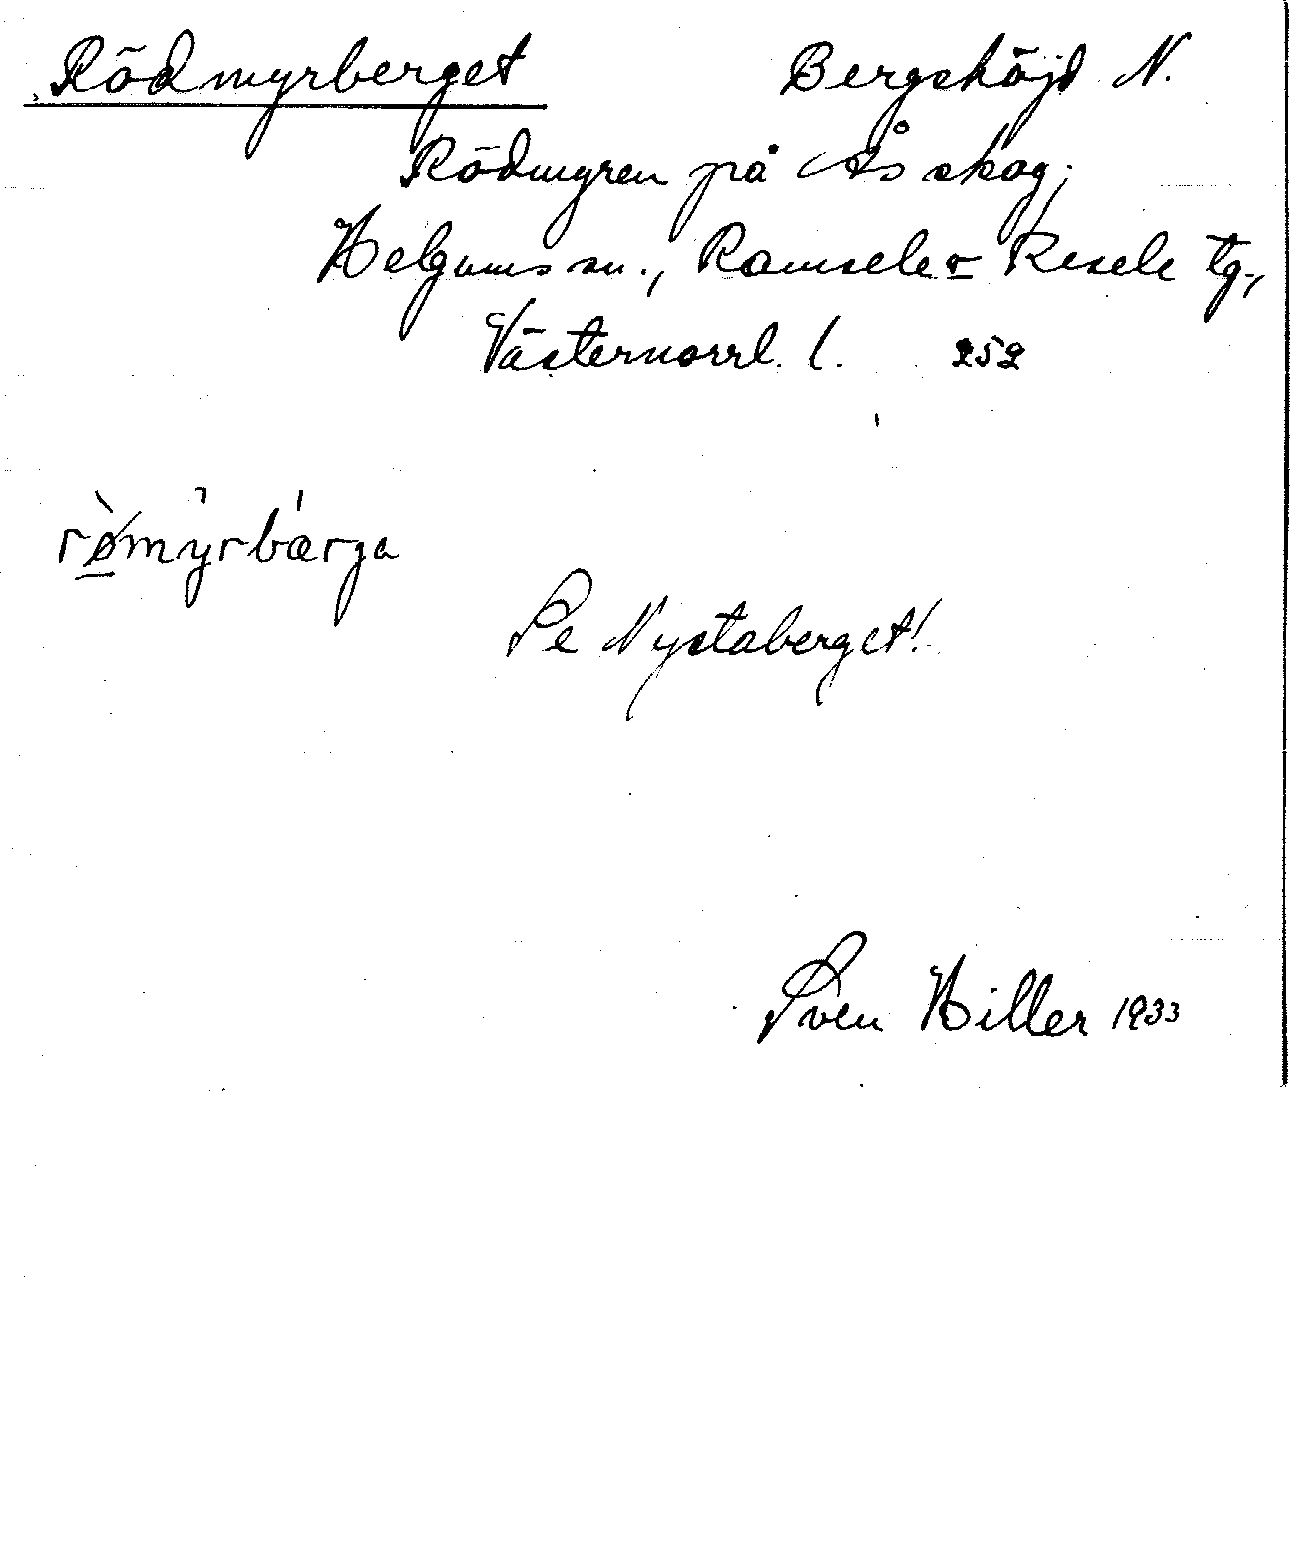 Rödmyrberget Bergshöjd N.
Rödmyren på Ås skog;
Helgums sn., Ramsele o Resele tg.,
Västernorrl. l. 252
rø̀mỳrbárga
Se Nystaberget!
Sven Hiller 1933